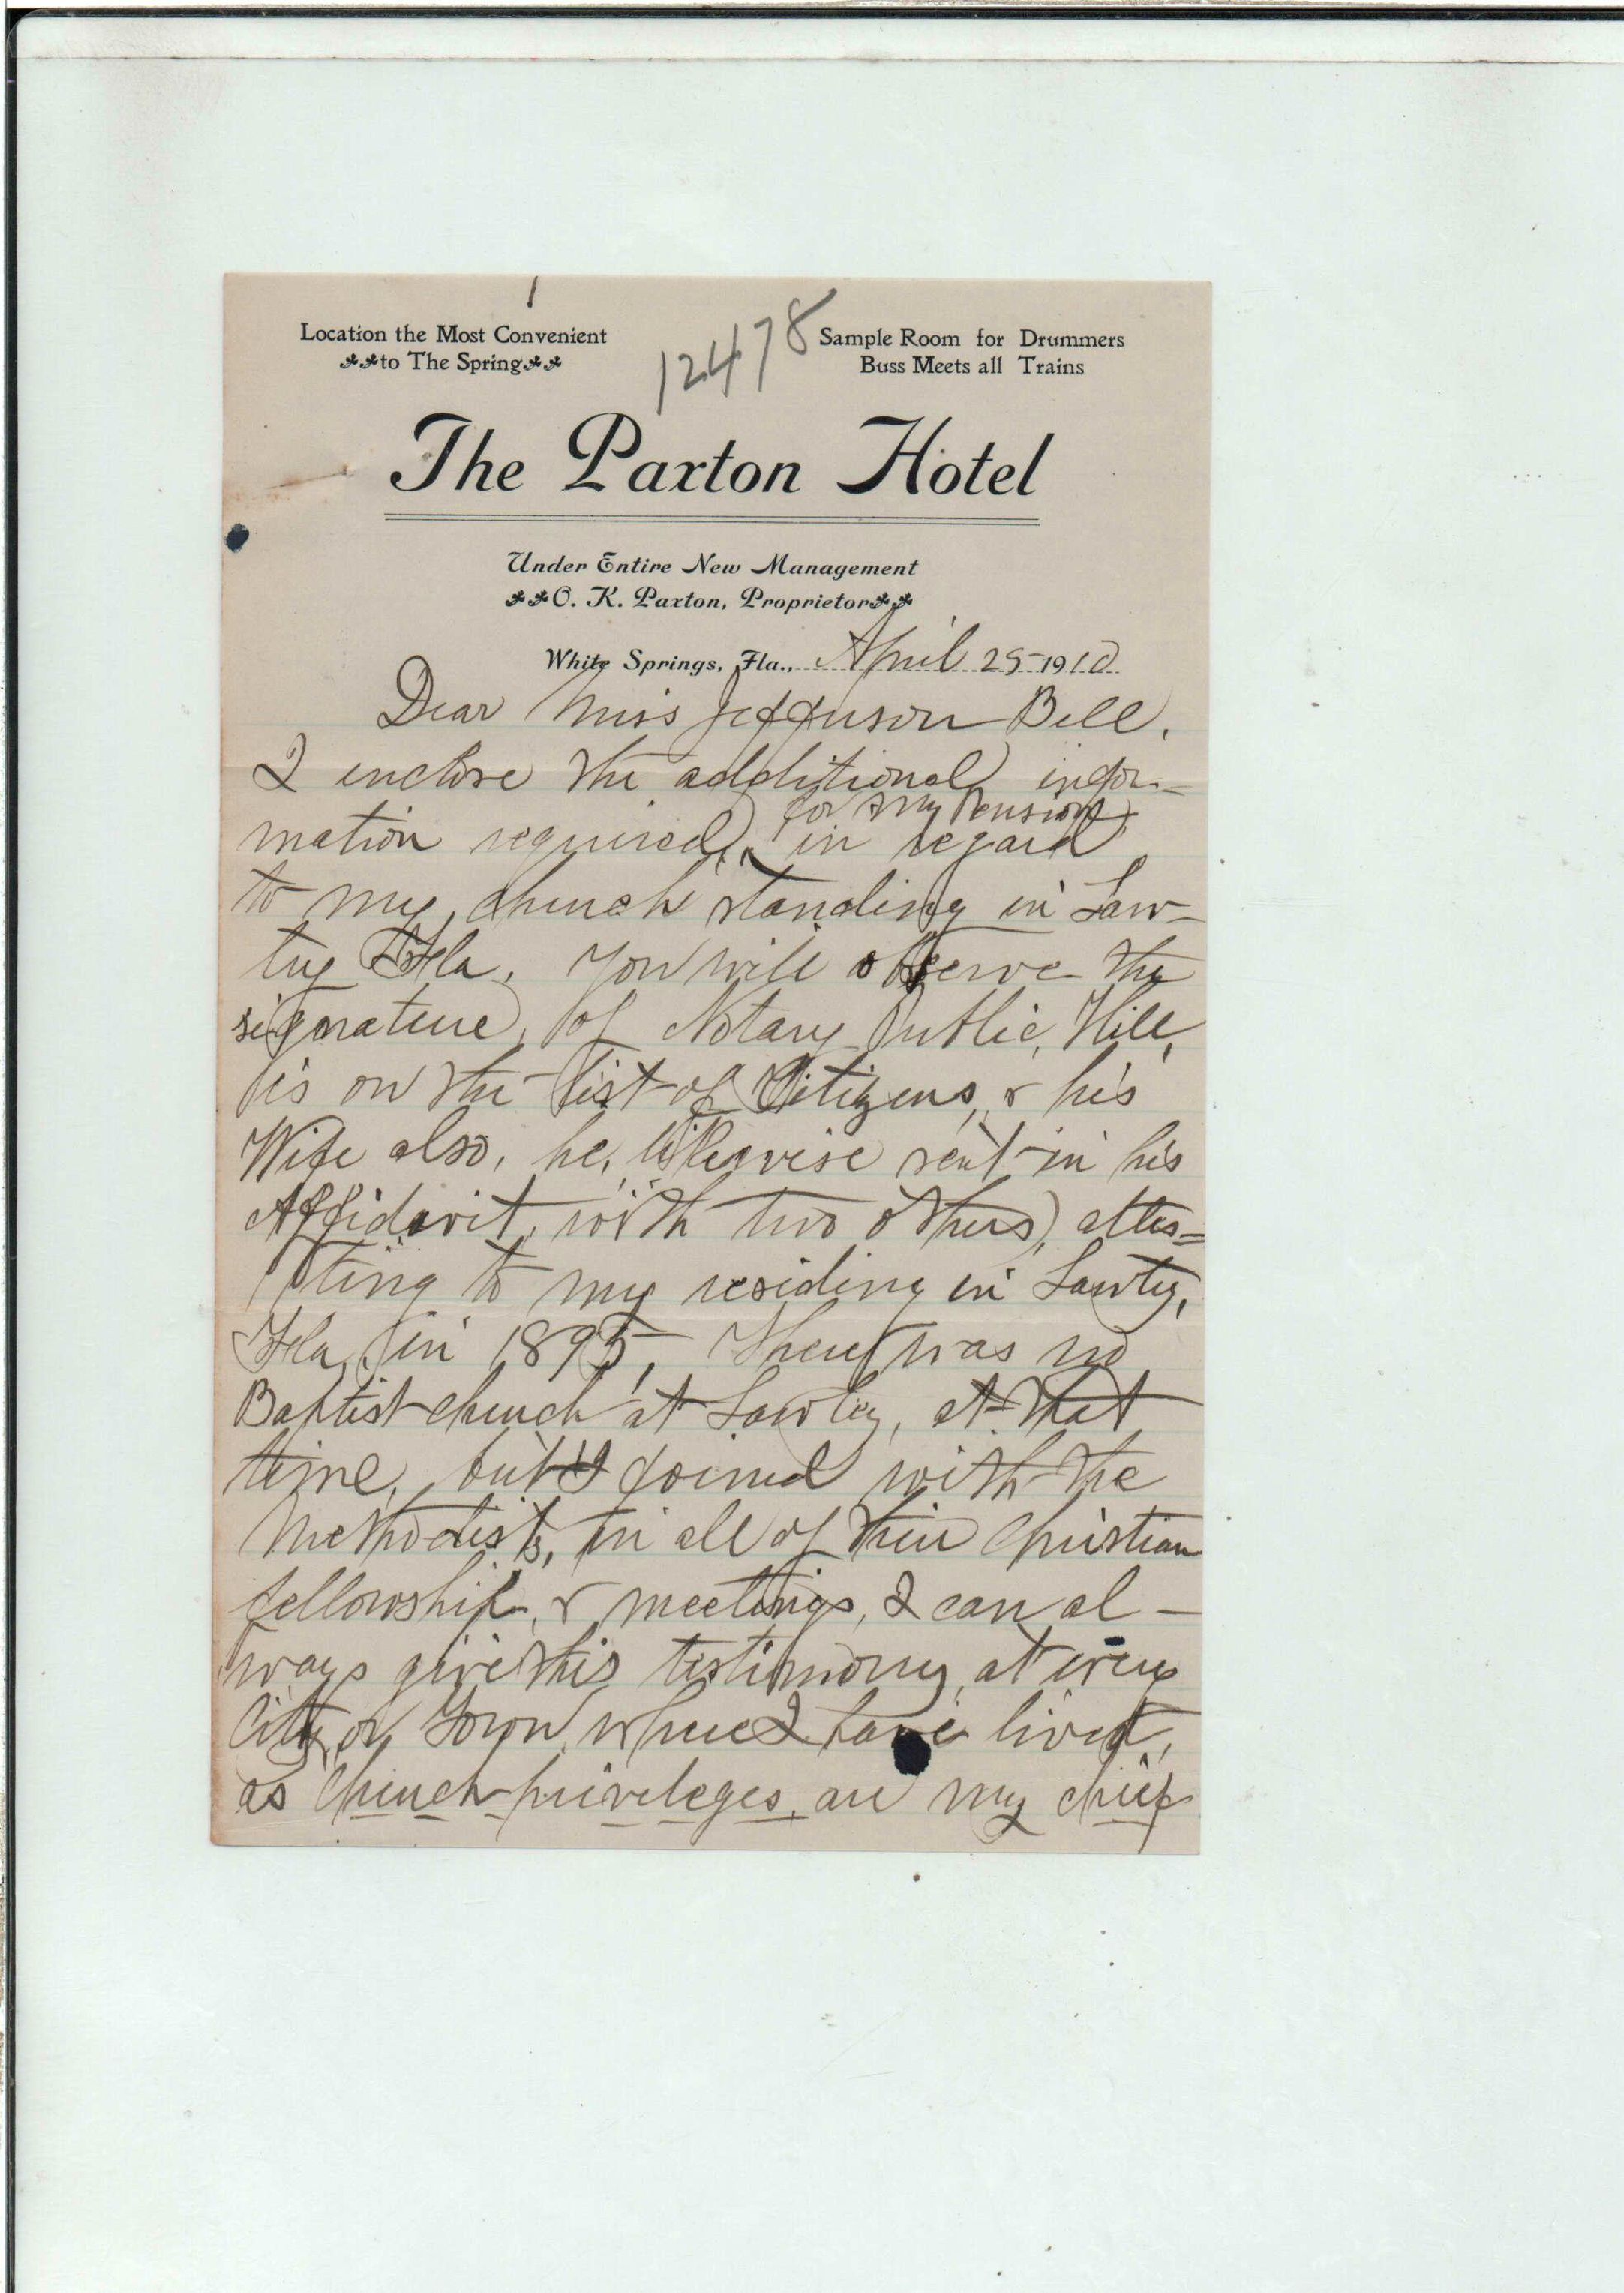 Location the Most Convenient
to The Spring
12478
Sample Room for Drummers
Buss Meets all Trains
The Paxton Hotel
Under Entire New Management
O. K. Paxton, Proprietor
White Springs, Fla., April 25 1910
Dear Miss Jefferson Bell.
I enclose the additional infor-
mation required, for my Pension in regard
to my church standing in Law-
tey Fla. You will observe the
signature, of Notary Public, Hill,
is on the list of Citizens, & his
Wife also, he, likewise sent in his
Affidavit, with two others, attes=
ting to my residing in Lawtey,
Fla, in 1895, There was no
Baptist church at Lawtey, at that
time, but I joined with the
Methodists, in all of their Christian
fellowship, & meetings, I can al-
ways give this testimony, at every
City, or Town, where I have lived,
as church privileges, are my chief